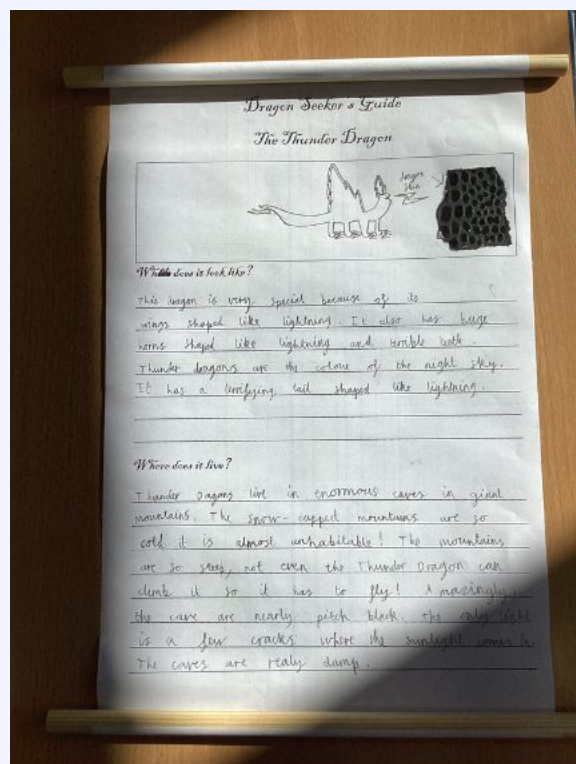 Dragon Seeker s Guide
The Thunder Dragon
dragon
skin
What does it look like?
This dragon is very special because of its
wings shaped like lightning. It also has huge
horns shaped like lightning and terrible teeth.
Thunder dragons are the colour of the night sky.
It has a terrifying tail shaped like lightning.
Where does it live?
Thunder Dagons live in enormous caves in giant
mountains. The snow-capped mountains are so
cold it is almost unhabitable! The mountains
are so steep, not even the Thunder Dragon can
climb it so it has to fly! Amazingly,
the cave are nearly pitch black. The only light
is a few cracks where the sunlight comes in
The caves are realy damp.